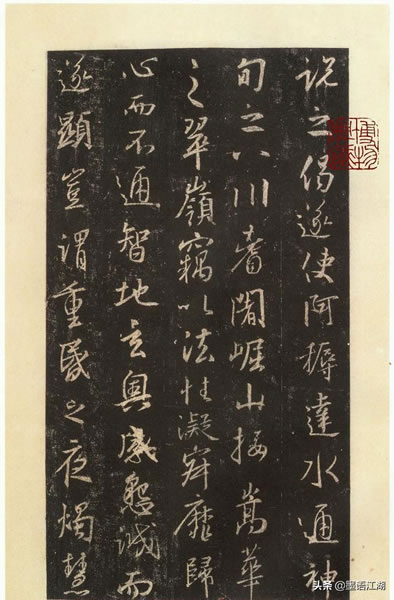 説之偈遂使阿耨達水通神
甸之八川耆闍崛山接嵩華
之翠嶺竊以法性凝寂靡歸
心而不通智地玄奥感懇誠而
遂顯豈謂重昏之夜燭慧
头条 @墨语江湖